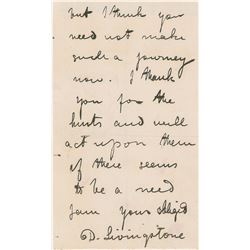 but I thank you
need not make
such a journey
now. I thank
you for the
hints and will
act upon them
if there seems
to be a need
I am yours obliged
D. Livingstone